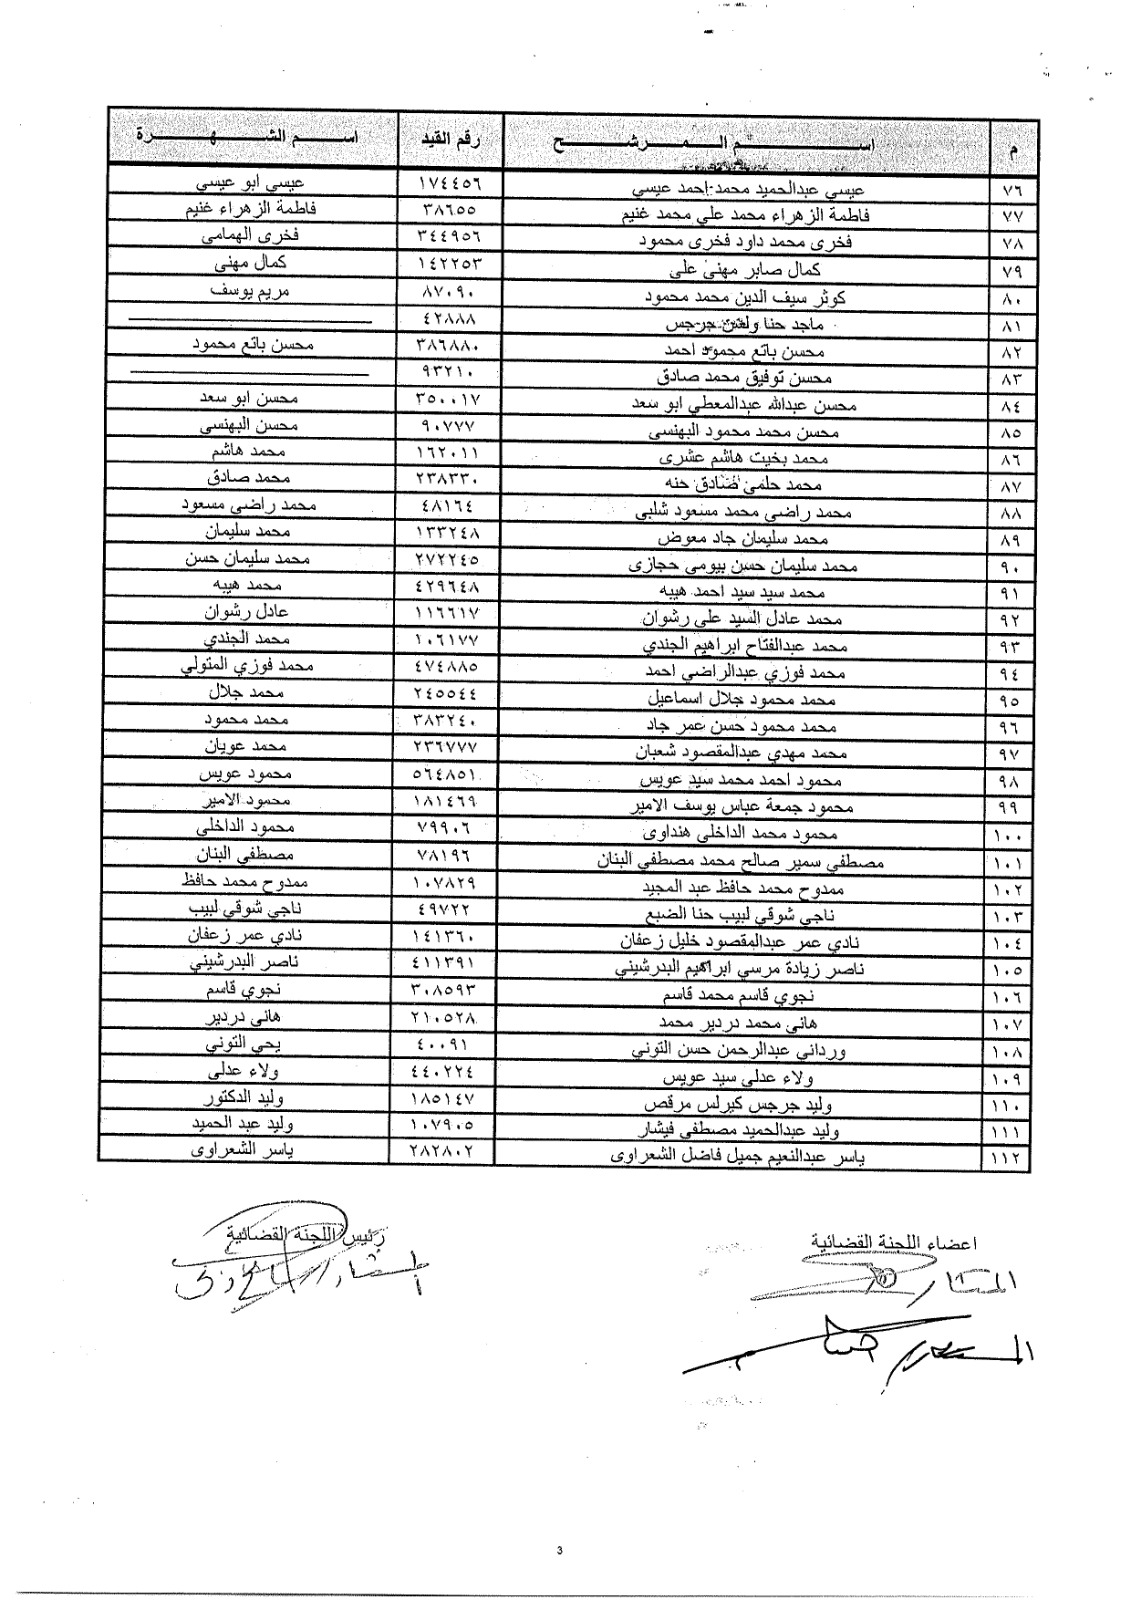 م اســـم الـــمـــرشـــح رقم القيد اســـم الشـــهـــرة
٧٦ عيسى عبدالحميد محمد احمد عيسى ١٧٤٤٥٦ عيسى ابو عيسى
٧٧ فاطمة الزهراء محمد علي محمد غنيم ٣٨٦٥٥ فاطمة الزهراء غنيم
٧٨ فخرى محمد داود فخرى محمود ٣٤٤٩٥٦ فخرى الهمامى
٧٩ كمال صابر مهنى على ١٤٢٢٥٣ كمال مهنى
٨٠ كوثر سيف الدين محمد محمود ٨٧٠٩٠ مريم يوسف
٨١ ماجد حنا جرجس ٤٢٨٨٨
٨٢ محسن باتع محمود احمد ٣٨٦٨٨٠ محسن باتع محمود
٨٣ محسن توفيق محمد صادق ٩٣٢١٠
٨٤ محسن عبدالله عبدالمعطي ابو سعد ٣٥٠٠١٧ محسن ابو سعد
٨٥ محسن محمد محمود البهنسى ٩٠٧٧٧ محسن البهنسى
٨٦ محمد بخيت هاشم عشرى ١٦٢٠١١ محمد هاشم
٨٧ محمد حلمى صادق حنه ٢٣٨٣٣٠ محمد صادق
٨٨ محمد راضى محمد مسعود شلبى ٤٨١٦٤ محمد راضى مسعود
٨٩ محمد سليمان جاد معوض ١٣٣٢٤٨ محمد سليمان
٩٠ محمد سليمان حسن بيومى حجازى ٢٧٢٢٤٥ محمد سليمان حسن
٩١ محمد سيد سيد احمد هيبه ٤٢٩٦٤٨ محمد هيبه
٩٢ محمد عادل السيد على رشوان ١١٦٦١٧ عادل رشوان
٩٣ محمد عبدالفتاح ابراهيم الجندي ١٠٦١٧٧ محمد الجندي
٩٤ محمد فوزي عبدالراضي احمد ٤٧٤٨٨٥ محمد فوزي المتولي
٩٥ محمد محمود جلال اسماعيل ٢٤٥٥٤٤ محمد جلال
٩٦ محمد محمود حسن عمر جاد ٣٨٣٢٤٠ محمد محمود
٩٧ محمد مهدي عبدالمقصود شعبان ٢٣٦٧٧٧ محمد عويان
٩٨ محمود احمد محمد سيد عويس ٥٦٤٨٥١ محمود عويس
٩٩ محمود جمعة عباس يوسف الامير ١٨١٤٦٩ محمود الامير
١٠٠ محمود محمد الداخلى هنداوى ٧٩٩٠٦ محمود الداخلى
١٠١ مصطفى سمير صالح محمد مصطفى البنان ٧٨١٩٦ مصطفى البنان
١٠٢ ممدوح محمد حافظ عبد المجيد ١٠٧٨٢٩ ممدوح محمد حافظ
١٠٣ ناجي شوقي لبيب حنا الضبع ٤٩٧٢٢ ناجي شوقي لبيب
١٠٤ نادي عمر عبدالمقصود خليل زعفان ١٤١٣٦٠ نادي عمر زعفان
١٠٥ ناصر زيادة مرسي ابراهيم البدرشيني ٤١١٣٩١ ناصر البدرشيني
١٠٦ نجوي قاسم محمد قاسم ٣٠٨٥٩٣ نجوي قاسم
١٠٧ هانى محمد دردير محمد ٢١٠٥٢٨ هانى دردير
١٠٨ ورداني عبدالرحمن حسن التوني ٤٠٠٩١ يحي التوني
١٠٩ ولاء عدلى سيد عويس ٤٤٠٢٢٤ ولاء عدلى
١١٠ وليد جرجس كيرلس مرقص ١٨٥١٤٧ وليد الدكتور
١١١ وليد عبدالحميد مصطفى فيشار ١٠٧٩٠٥ وليد عبد الحميد
١١٢ ياسر عبدالنعيم جميل فاضل الشعراوى ٢٨٢٨٠٢ ياسر الشعراوى
اعضاء اللجنة القضائية رئيس اللجنة القضائية
المستشار المستشار
3